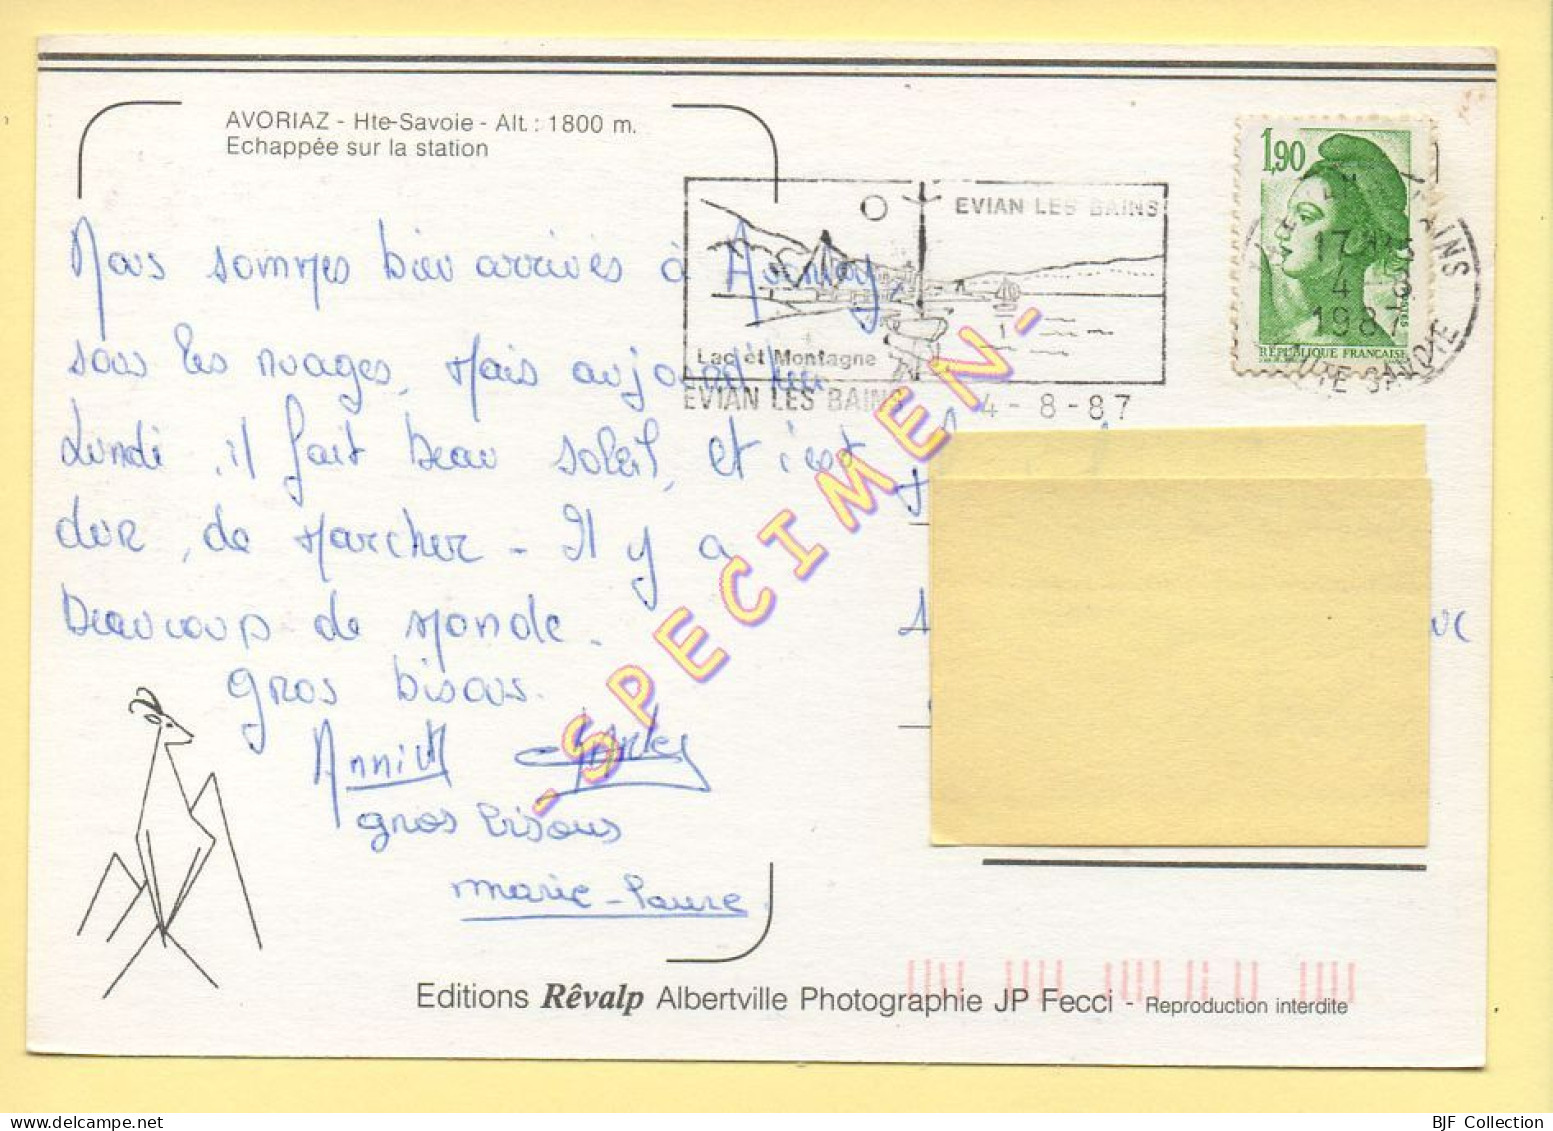 AVORIAZ - Hte-Savoie - Alt. : 1800 m.
Echappée sur la station
EVIAN LES BAINS
Lac et Montagne
EVIAN LES BAINS
4-8-87
1,90
RÉPUBLIQUE FRANÇAISE
17 H
4 - 8
1987
HAUTE SAVOIE
Nous sommes bien arrivés à Avoriaz,
sous les nuages, Mais aujourd'hui
Lundi, il fait beau soleil, et c'est
dur, de Marcher - Il y a
beaucoup de Monde.
gros bisous.
Annick Charles
gros bisous
Marie-Laure
- SPECIMEN -
Editions Rêvalp Albertville Photographie JP Fecci - Reproduction interdite
BJF Collection